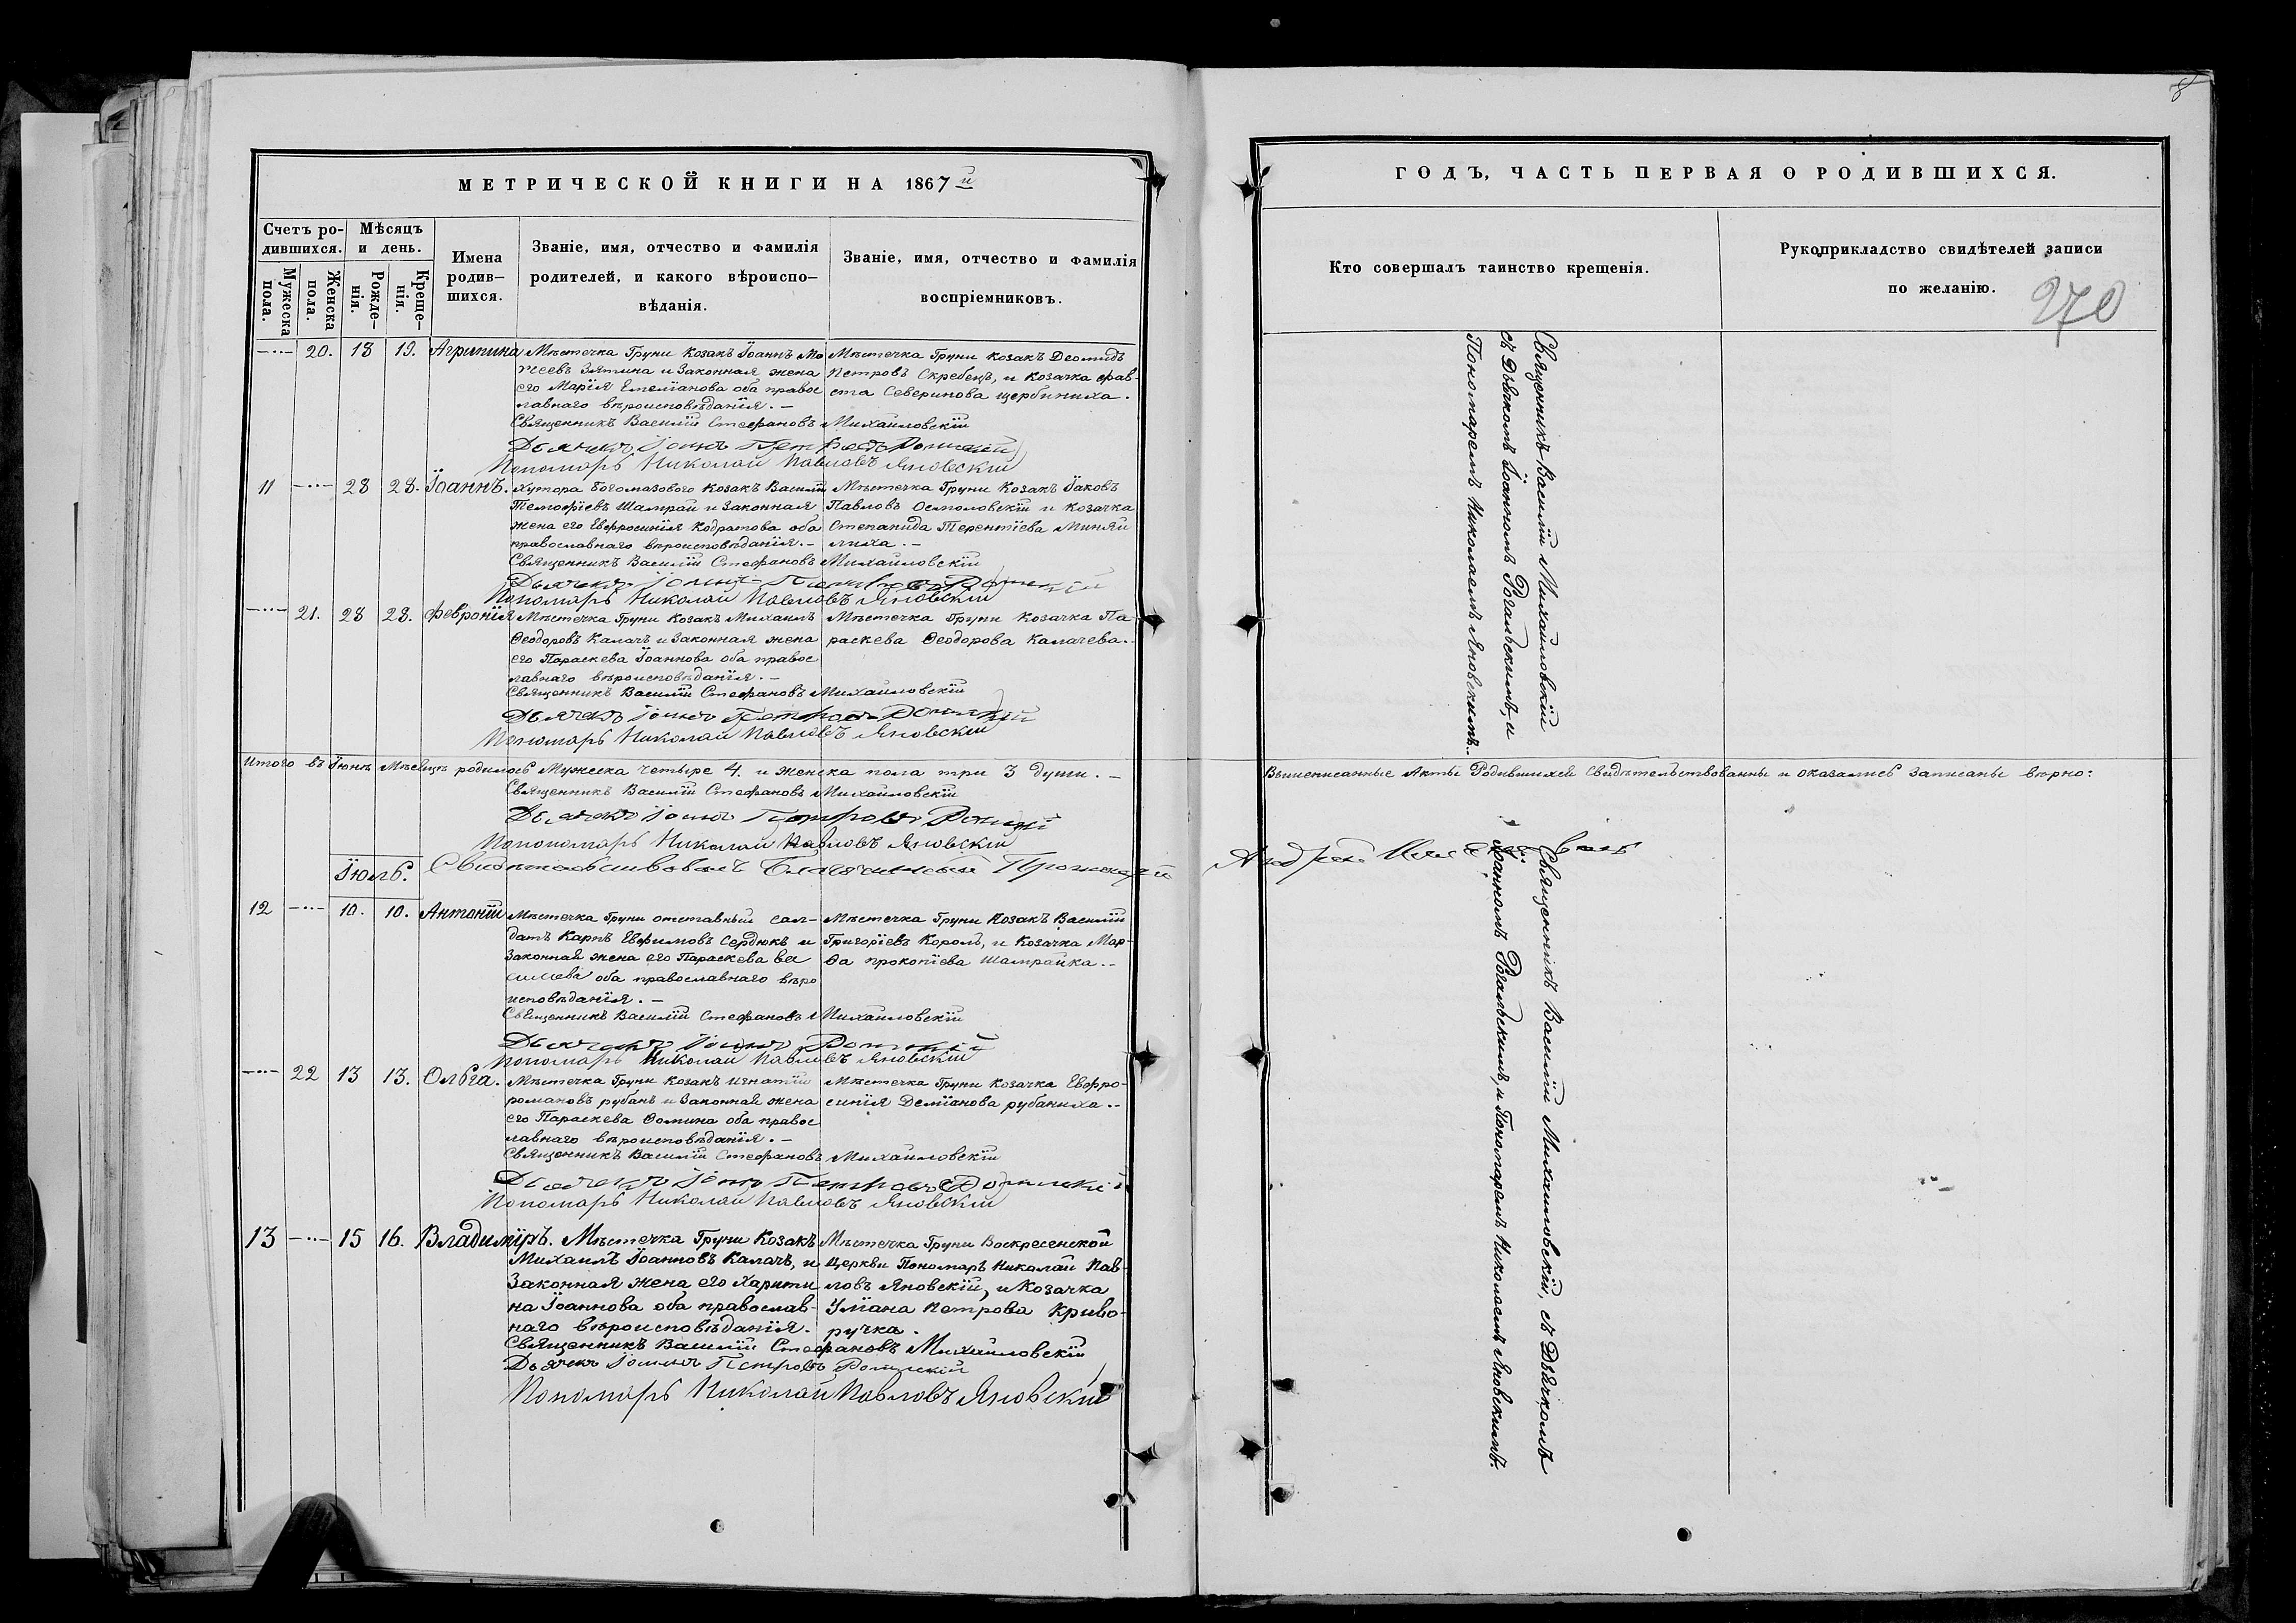 МЕТРИЧЕСКОЙ КНИГИ НА 1867 й
Счетъ ро-
дившихся.
Мѣсяцъ
и день.
Мужеска
пола.
Женска
пола.
Рожде-
нія.
Креще-
нія.
Имена
родив-
шихся.
Званіе, имя, отчество и фамилія
родителей, и какого вѣроиспо-
вѣданія.
Званіе, имя, отчество и фамилія
воспріемниковъ.
20. 18 19. Агрипина
Мѣстечка Груни козакъ Іоаннъ Мо
сеевъ Зятина и Законная жена
его Марія Емеліанова оба правос
лавнаго вѣроисповѣданія. —
Мѣстечка Груни козакъ Деомидъ
Петровъ Скребецъ, и козачка Фав-
ста Северинова щербиниха.
Священникъ Василій Стефановъ Михаиловскій
Дьячекъ Іоаннъ Петровъ
Пономарь Николай Павловъ Яновскій
11 28 28. Іоаннъ.
Хутора Богомазового козакъ Василій
Темофіевъ Шамрай и Законная
жена его Евфросинія Кодратова оба
православнаго вѣроисповѣданія. —
Мѣстечка Груни Козакъ Іаковъ
Павловъ Осмоловскій и козачка
Степанида Терентіева Миняй
лиха. —
Священникъ Василій Стефановъ Михаиловскій
Дьячекъ Іоаннъ Петровъ
Пономарь Николай Павловъ Яновскій
21. 28 28. Февронія
Мѣстечка Груни Козакъ Михаилъ
Ѳеодоровъ Калачъ и Законная жена
его Параскева Іоаннова оба правос
лавнаго вѣроисповѣданія. —
Мѣстечка Груни Козачка Па
раскева Ѳеодорова Калачева. —
Священникъ Василій Стефановъ Михаиловскій
Дьячекъ Іоаннъ Петровъ
Пономарь Николай Павловъ Яновскій
Итого въ Іюнѣ Мѣсяцѣ родилось Мужеска четыре 4. и женска пола три 3 души. —
Священникъ Василій Стефановъ Михаиловскій
Дьячекъ Іоаннъ Петровъ
Пономарь Николай Павловъ Яновскій
Іюль.
Свидѣтельствовалъ Благочинный
12 10. 10. Антоній
Мѣстечка Груни отставный сал-
датъ Карпъ Евфимовъ Сердюкъ и
Законная жена его Параскева Ва
силиева оба православнаго вѣро
исповѣданія. —
Мѣстечка Груни Козакъ Василій
Григоріевъ Король, и Козачка Мар-
ѳа прокопіева шамрайка. —
Священникъ Василій Стефановъ Михаиловскій
Дьячекъ Іоаннъ
Пономарь Николай Павловъ Яновскій
22 13 13. Ольга.
Мѣстечка Груни козакъ игнатій
романовъ рубанъ и Законная жена
его Параскева Ѳомина оба правос
лавнаго вѣроисповѣданія. —
Мѣстечка Груни козачка Евфро-
синія Деміанова рубаниха. —
Священникъ Василій Стефановъ Михаиловскій
Дьячекъ Іоаннъ Петровъ
Пономарь Николай Павловъ Яновскій
13 15 16. Владиміръ.
Мѣстечка Груни Козакъ
Михаилъ Іоанновъ Калачъ, и
Законная жена его Харити
на Іоаннова оба православ-
наго вѣроисповѣданія.
Мѣстечка Груни Воскресенской
Церкви Пономарь Николай Пав-
ловъ Яновскій, и Козачка
Уліана Петрова Криво-
ручка.
Священникъ Василій Стефановъ Михаиловскій
Дьячекъ Іоаннъ Петровъ
Пономарь Николай Павловъ Яновскій
8
ГОДЪ, ЧАСТЬ ПЕРВАЯ О РОДИВШИХСЯ.
Кто совершалъ таинство крещенія.
Рукоприкладство свидѣтелей записи
по желанію.
270
Священникъ Василій Михаиловскій
съ Дьячкомъ Іоанномъ Рогальскимъ, и
Пономаремъ Николаемъ Яновскимъ.
Вышеписанные Акты Родившихся Свидѣтельствованны и оказались Записаны вѣрно:
Андрей
Священникъ Василій Михаиловскій, съ Дьячкомъ
Іоанномъ Рогальскимъ, и Пономаремъ Николаемъ Яновскимъ.